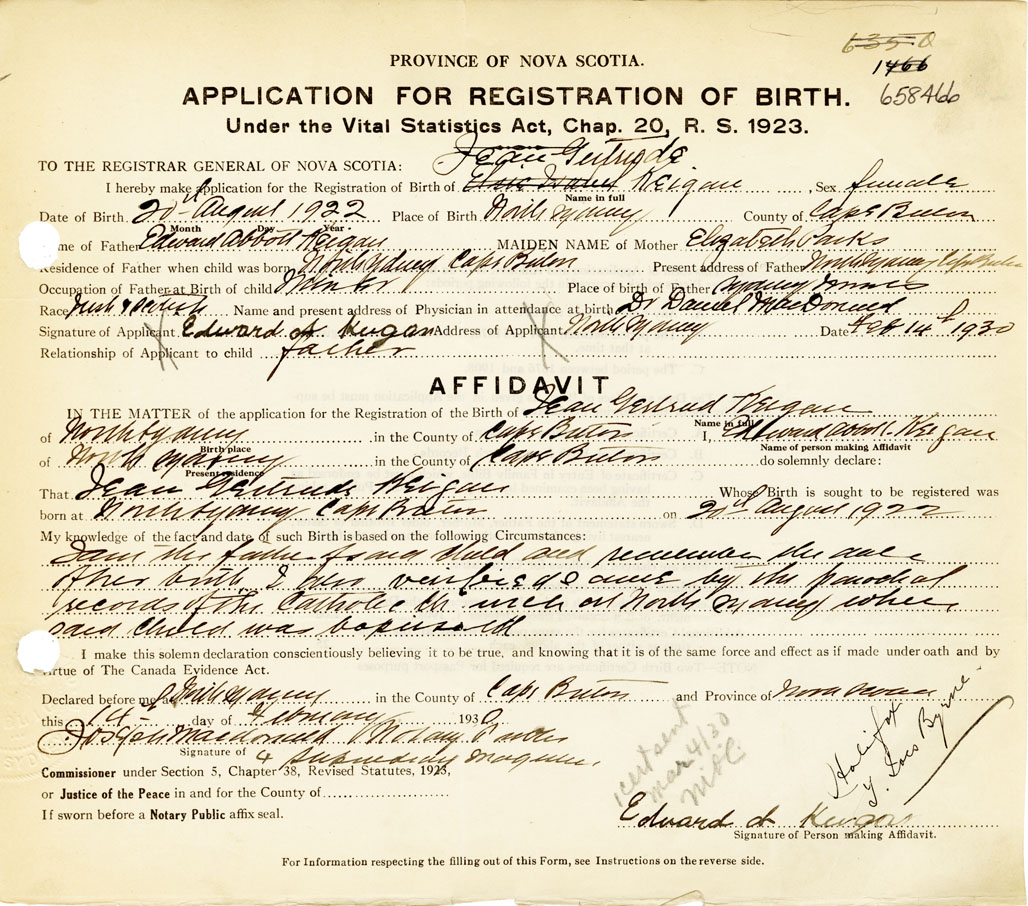 635 Q
1466
658466
PROVINCE OF NOVA SCOTIA.
APPLICATION FOR REGISTRATION OF BIRTH.
Under the Vital Statistics Act, Chap. 20, R. S. 1923.
Jean Gertrude
TO THE REGISTRAR GENERAL OF NOVA SCOTIA:
I hereby make application for the Registration of Birth of Keigan, Sex female
Name in full
Date of Birth 20th August 1922 Place of Birth North Sydney County of Cape Breton
Month Day Year
Name of Father Edward Abbott Keigan MAIDEN NAME of Mother Elizabeth Parks
Residence of Father when child was born North Sydney Cape Breton Present address of Father North Sydney Cape Breton
Occupation of Father at Birth of child Place of birth of Father Sydney Mines
Race Irish & Scotch Name and present address of Physician in attendance at birth Dr Daniel MacDonald
Signature of Applicant Edward A. Keigan Address of Applicant North Sydney Date Feb 14th 1930
Relationship of Applicant to child father
AFFIDAVIT
IN THE MATTER of the application for the Registration of the Birth of Jean Gertrud Keigan
Name in full
of North Sydney in the County of Cape Breton I, Edward Abbott Keigan
Birth place Name of person making Affidavit
of North Sydney in the County of Cape Breton do solemnly declare:
Present residence
That Jean Gertrude Keigan Whose Birth is sought to be registered was
born at North Sydney Cape Breton on 20th August 1922
My knowledge of the fact and date of such Birth is based on the following Circumstances:
I am the father of said child and remember the date
of her birth. I have verified same by the parochial
records of the Catholic Church at North Sydney where
said child was baptised
I make this solemn declaration conscientiously believing it to be true, and knowing that it is of the same force and effect as if made under oath and by
virtue of The Canada Evidence Act.
Declared before me at North Sydney in the County of Cape Breton and Province of Nova Scotia
this 14 day of February 1930
Joseph Macdonald Notary Public
Signature of & Stipendiary Magistrate
Commissioner under Section 5, Chapter 38, Revised Statutes, 1923,
or Justice of the Peace in and for the County of
If sworn before a Notary Public affix seal.
1 cert sent
Mar 4/30
Halifax
Byrne
Edward A Keigan
Signature of Person making Affidavit.
For Information respecting the filling out of this Form, see Instructions on the reverse side.